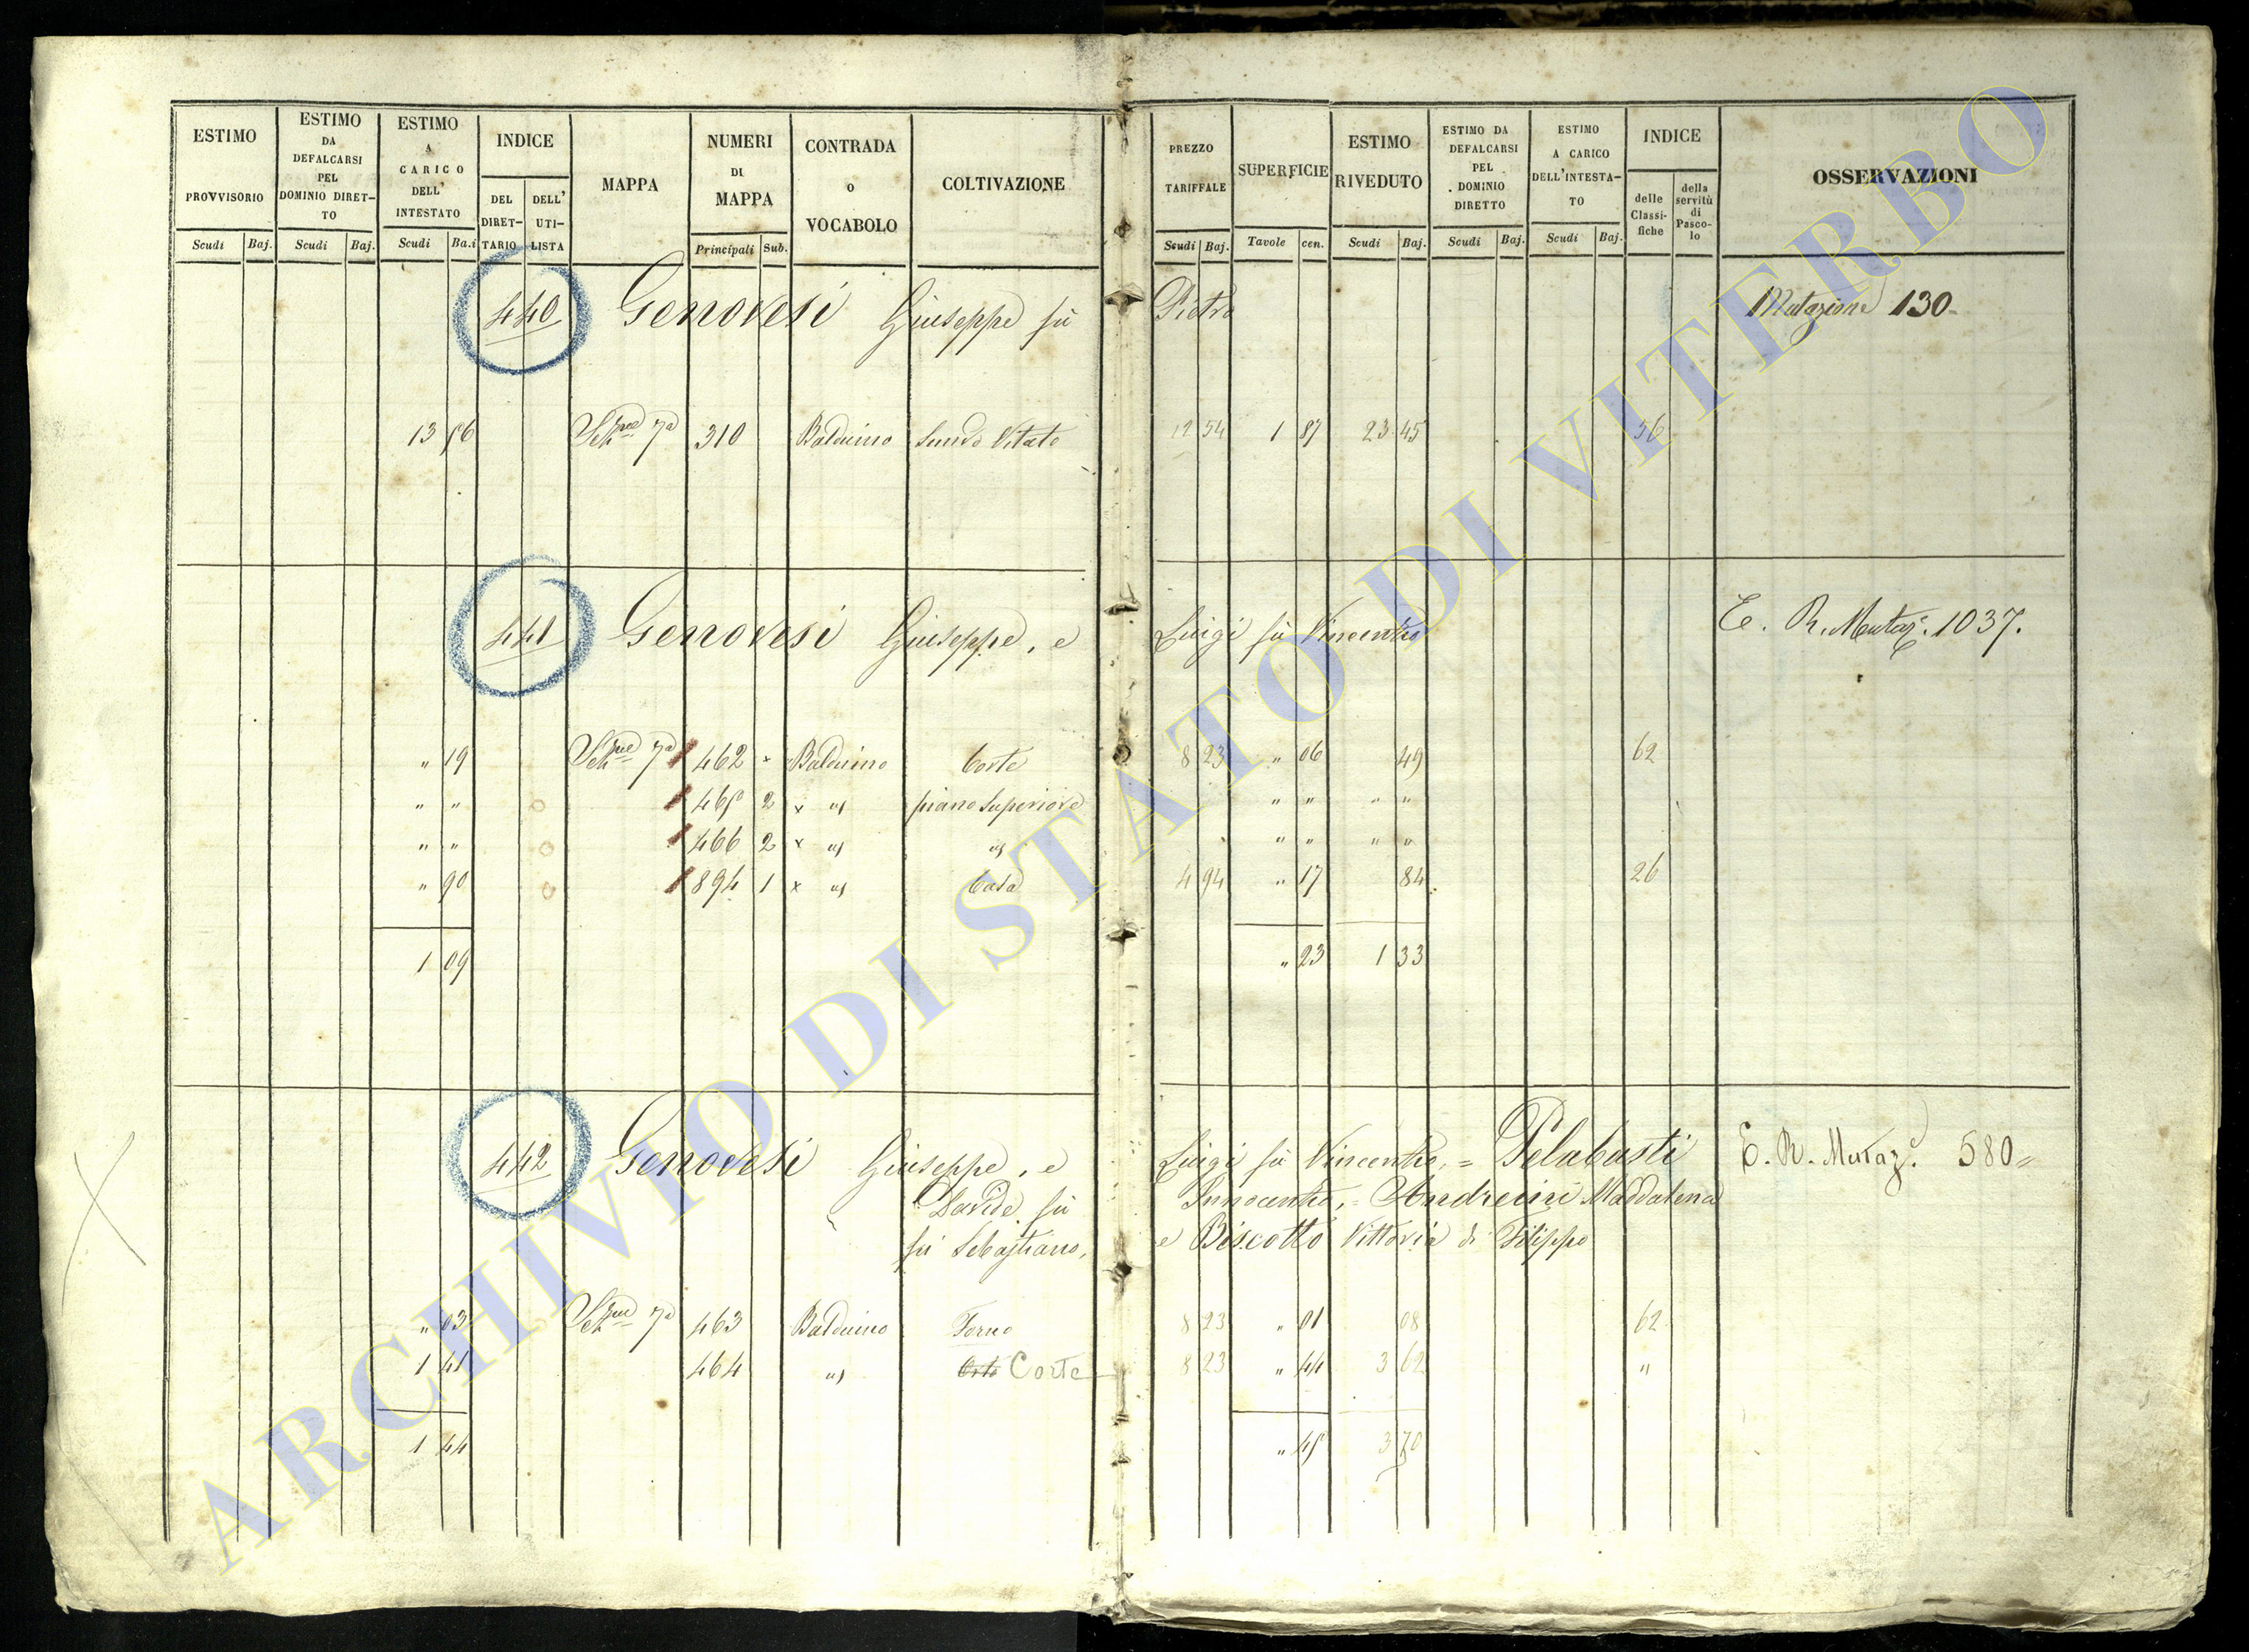 ESTIMO PROVVISORIO
ESTIMO DA DEFALCARSI PEL DOMINIO DIRET-TO
ESTIMO A CARICO DELL' INTESTATO
INDICE
DEL DIRET-TARIO
DELL' UTI-LISTA
MAPPA
NUMERI DI MAPPA
CONTRADA O VOCABOLO
COLTIVAZIONE
PREZZO TARIFFALE
SUPERFICIE
ESTIMO RIVEDUTO
ESTIMO DA DEFALCARSI PEL DOMINIO DIRETTO
ESTIMO A CARICO DELL'INTESTA-TO
INDICE
delle Classi-fiche
della servitù di Pasco-lo
OSSERVAZIONI
Scudi Baj. Scudi Baj. Scudi Ba.i Principali Sub. Scudi Baj. Tavole cen. Scudi Baj. Scudi Baj. Scudi Baj.
440 Genovesi Giuseppe fù Pietro Mutazione 130
13 56 7a 310 Balduino Vitato 12 54 1 87 23 45 56
441 Genovesi Giuseppe, e Luigi fù Vincenzo E. R. Mutaz. 1037.
" 19 7a 462 Balduino Corte 8 23 " 06 49 62
" " 465 2 x " piano Superiore " " " "
" " 466 2 x " " " " " "
" 90 894 1 x " Casa 4 94 " 17 84 26
1 09 " 23 1 33
442 Genovesi Giuseppe, e Luigi fù Vincenzo, = Pelabusti E. R. Mutaz. 580
Davide fù Innocenzo, = Andreini Maddalena
fù Sebastiano, e Biscotto Vittoria di Filippo
" 03 7a 463 Balduino Forno 8 23 " 01 08 62
1 41 464 " Corte 8 23 " 44 3 62 "
1 44 " 45 3 70
ARCHIVIO DI STATO DI VITERBO